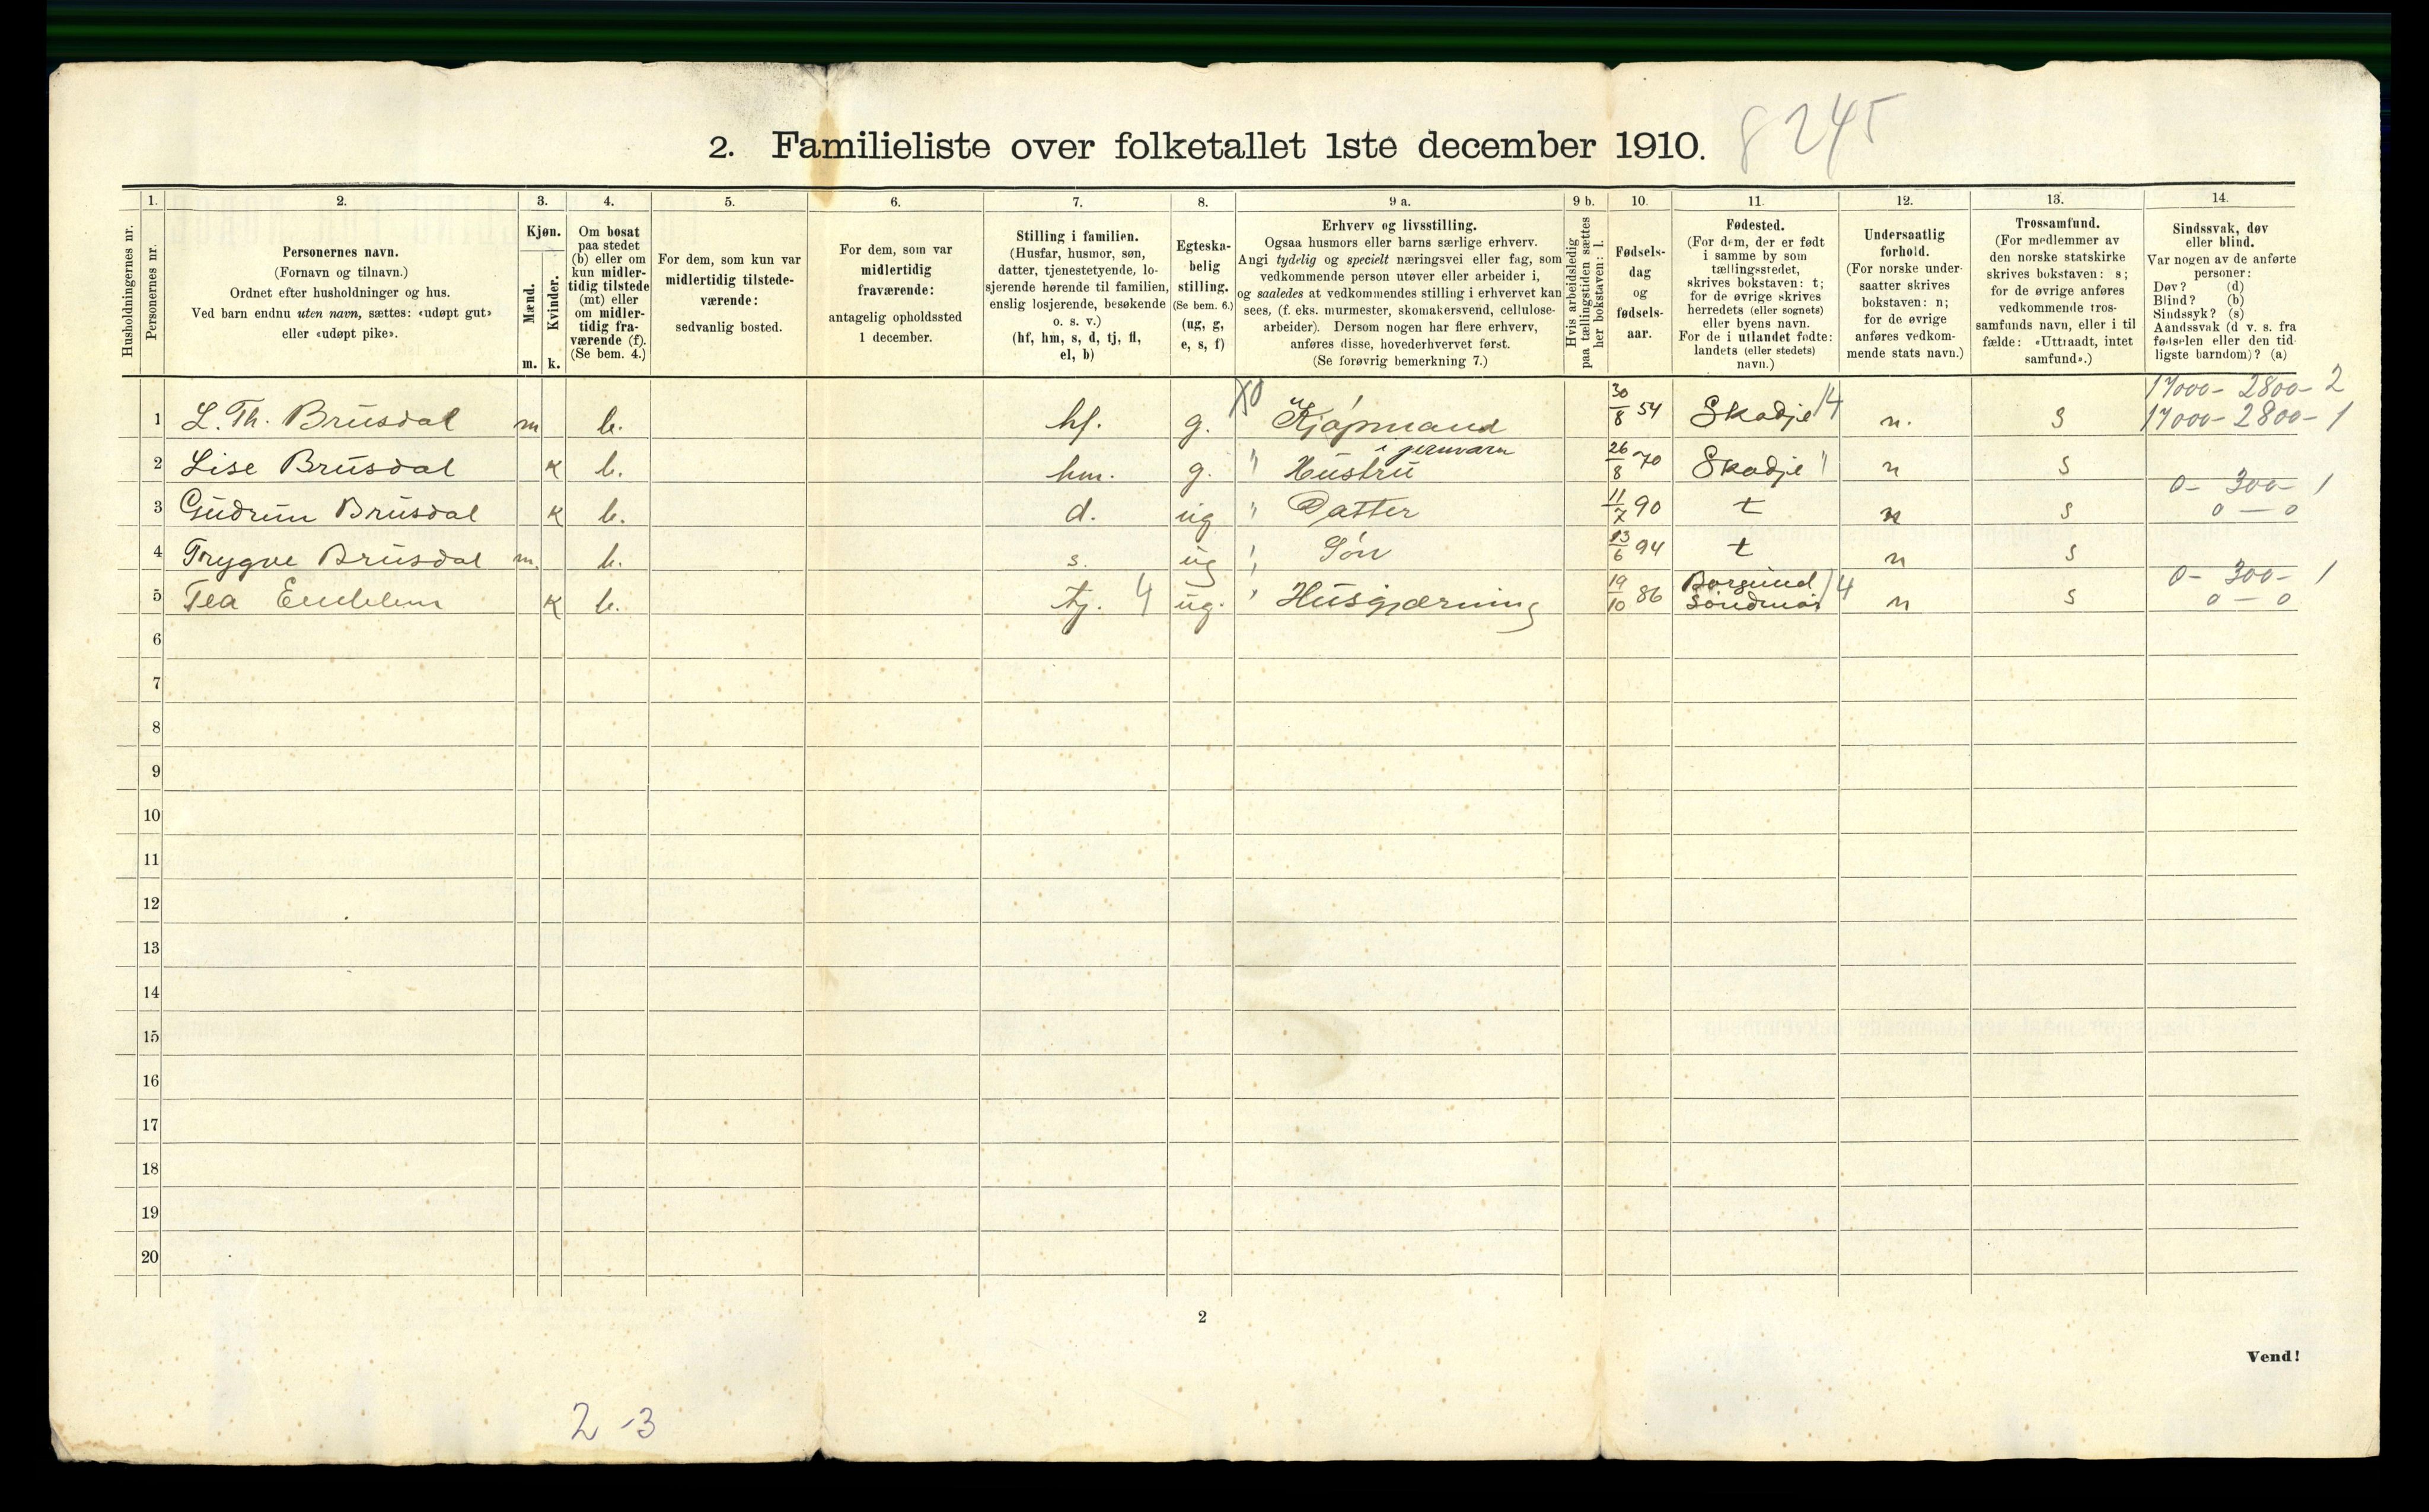 2. Familieliste over folketallet 1ste december 1910. 8245
Husholdningernes nr.
1. Personernes nr.
2. Personernes navn.
(Fornavn og tilnavn.)
Ordnet efter husholdninger og hus.
Ved barn endnu uten navn, sættes: «udøpt gut»
eller «udøpt pike».
3. Kjøn.
Mænd. m.
Kvinder. k.
4. Om bosat
paa stedet
(b) eller om
kun midler-
tidig tilstede
(mt) eller
om midler-
tidig fra-
værende (f).
(Se bem. 4.)
5. For dem, som kun var
midlertidig tilstede-
værende:
sedvanlig bosted.
6. For dem, som var
midlertidig
fraværende:
antagelig opholdssted
1 december.
7. Stilling i familien.
(Husfar, husmor, søn,
datter, tjenestetyende, lo-
sjerende hørende til familien,
enslig losjerende, besøkende
o. s. v.)
(hf, hm, s, d, tj, fl,
el, b)
8. Egteska-
belig
stilling.
(Se bem. 6.)
(ug, g,
e, s, f)
9 a. Erhverv og livsstilling.
Ogsaa husmors eller barns særlige erhverv.
Angi tydelig og specielt næringsvei eller fag, som
vedkommende person utøver eller arbeider i,
og saaledes at vedkommendes stilling i erhvervet kan
sees, (f. eks. murmester, skomakersvend, cellulose-
arbeider). Dersom nogen har flere erhverv,
anføres disse, hovederhvervet først.
(Se forøvrig bemerkning 7.)
9 b. Hvis arbeidsledig
paa tællingstiden sættes
her bokstaven: l.
10. Fødsels-
dag
og
fødsels-
aar.
11. Fødested.
(For dem, der er født
i samme by som
tællingsstedet,
skrives bokstaven: t;
for de øvrige skrives
herredets (eller sognets)
eller byens navn.
For de i utlandet fødte:
landets (eller stedets)
navn.)
12. Undersaatlig
forhold.
(For norske under-
saatter skrives
bokstaven: n;
for de øvrige
anføres vedkom-
mende stats navn.)
13. Trossamfund.
(For medlemmer av
den norske statskirke
skrives bokstaven: s;
for de øvrige anføres
vedkommende tros-
samfunds navn, eller i til
fælde: «Uttraadt, intet
samfund».)
14. Sindssvak, døv
eller blind.
Var nogen av de anførte
personer:
Døv? (d)
Blind? (b)
Sindssyk? (s)
Aandssvak (d v. s. fra
fødselen eller den tid-
ligste barndom)? (a)
17000- 2800- 2
1 L. Th. Brusdal m b. hf. g. Kjøpmand 30/8 54 Skodje 14 n. s 17000- 2800- 1
i jernvarer
2 Lise Brusdal k b. hm. g. " Hustru 26/8 70 Skodje " n s
0- 300- 1
3 Gudrun Brusdal k b. d. ug " Datter 11/7 90 t n s 0 — 0
4 Trygve Brusdal m. b. s. ug " Søn 13/6 94 t n s
0- 300- 1
5 Tea Emblem k b. tj. 4 ug. " Husgjerning 19/10 86 Borgund Søndmør 14 n s 0 — 0
6
7
8
9
10
11
12
13
14
15
16
17
18
19
20
2
Vend!
2-3